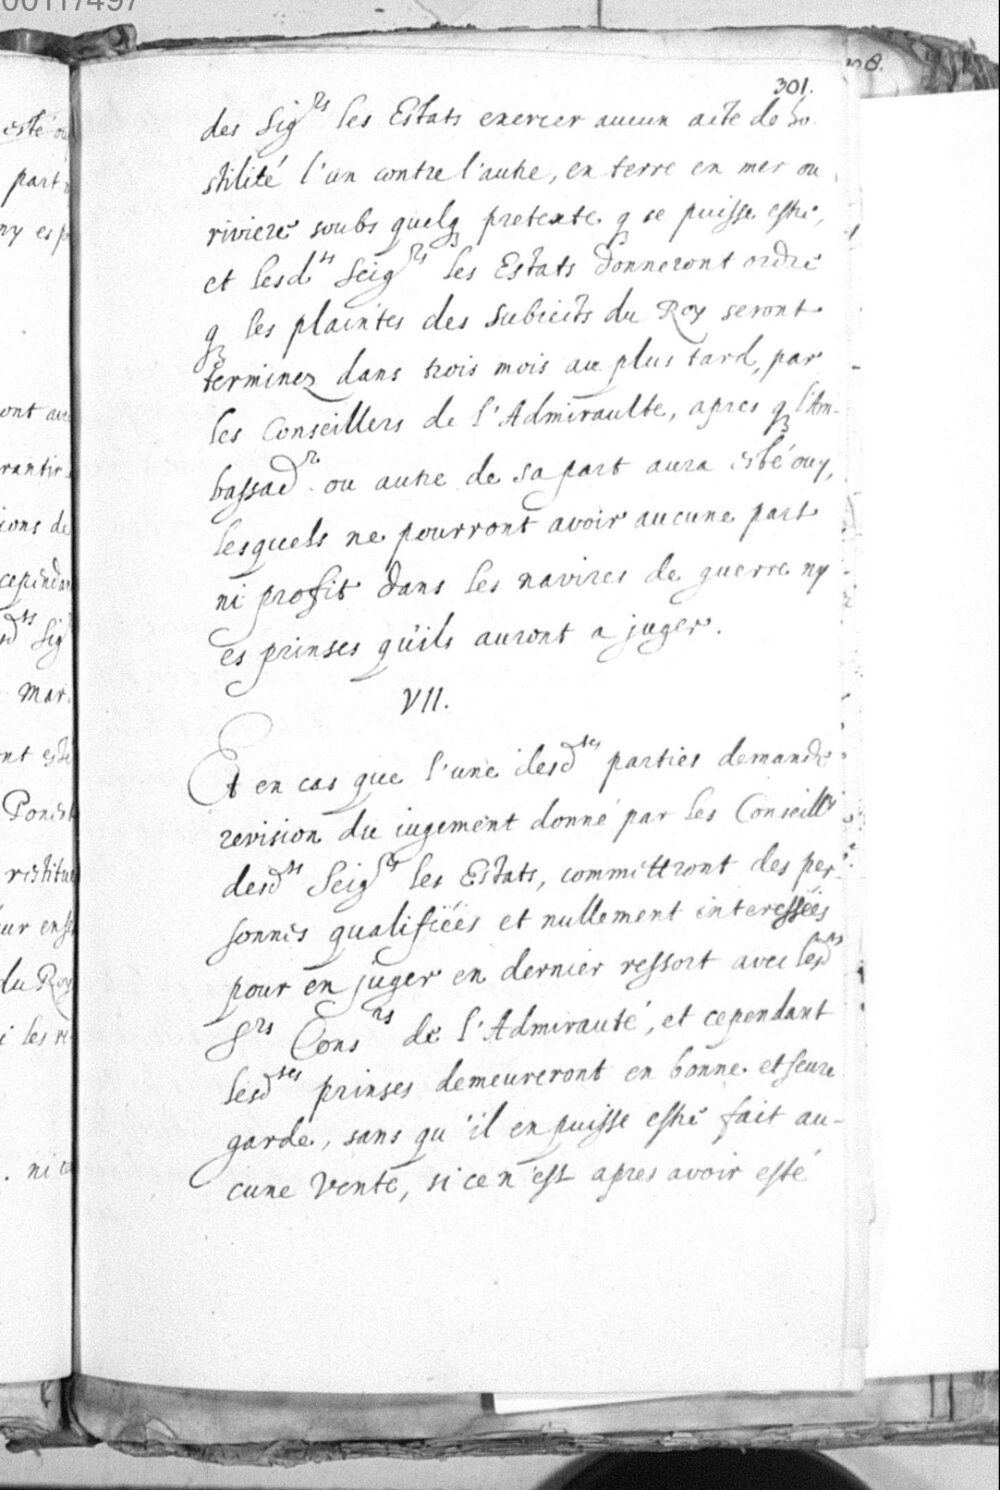 00117497
301.
des Sigrs les Estats exercer aucun acte de ho-
stilité l'un contre l'autre, en terre en mer ou
riviere soubs quelq pretexte q se puisse estre,
et lesdts Seigrs les Estats donneront ordre
q les plaintes des Subiects du Roy seront
terminez dans trois mois au plus tard, par
les Conseillers de l'Admiraulte, apres q l'Am-
bassadr ou autre de sa part aura esté ouy,
lesquels ne pourront avoir aucune part
ni profit dans les navires de guerre ny
es prinses qu'ils auront a juger.
VII.
Et en cas que l'une desdtes parties demande
revision du iugement donné par les Conseillrs
desdts Seigrs les Estats, committront des per-
sonnes qualifiéés et nullement interesséés
pour en juger en dernier ressort avec lesdts
Srs Consrs de l'Admirauté, et cependant
lesdtes prinses demeureront en bonne et seure
garde, sans qu'il en puisse estre fait au-
cune vente, si ce n'est apres avoir esté